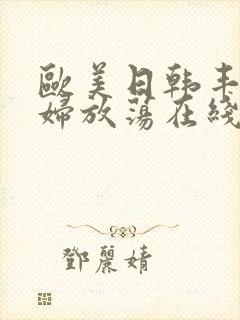 歐美日韩丰
婦放荡在綫
鄧麗婧